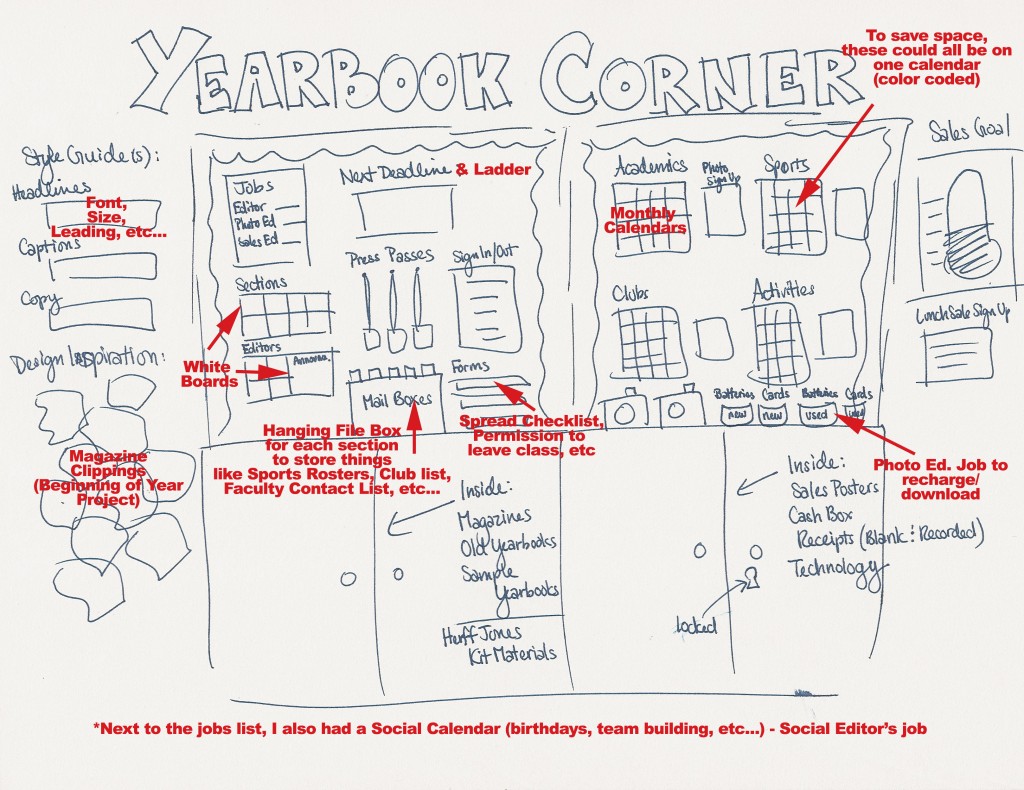 YEARBOOK CORNER
To save space,
these could all be on
one calendar
(color coded)
Style Guide(s):
Headlines
Font,
Size,
Leading, etc...
Captions
Copy
Design Inspiration:
Magazine
Clippings
(Beginning of Year
Project)
Jobs
Editor
Photo Ed
Sales Ed
Next Deadline & Ladder
Press Passes
Sign In/Out
Sections
Editors
Announ.
White
Boards
Mail Boxes
Forms
Hanging File Box
for each section
to store things
like Sports Rosters, Club list,
Faculty Contact List, etc...
Spread Checklist,
Permission to
leave class, etc
Academics
Photo
Sign Up
Sports
Monthly
Calendars
Clubs
Activities
Batteries
new
Cards
new
Batteries
used
Cards
used
Photo Ed. Job to
recharge/
download
Sales Goal
Lunch Sale Sign Up
Inside:
Magazines
Old Yearbooks
Sample
Yearbooks
Herff Jones
Kit Materials
Inside:
Sales Posters
Cash Box
Receipts (Blank : Recorded)
Technology
locked
*Next to the jobs list, I also had a Social Calendar (birthdays, team building, etc...) - Social Editor's job